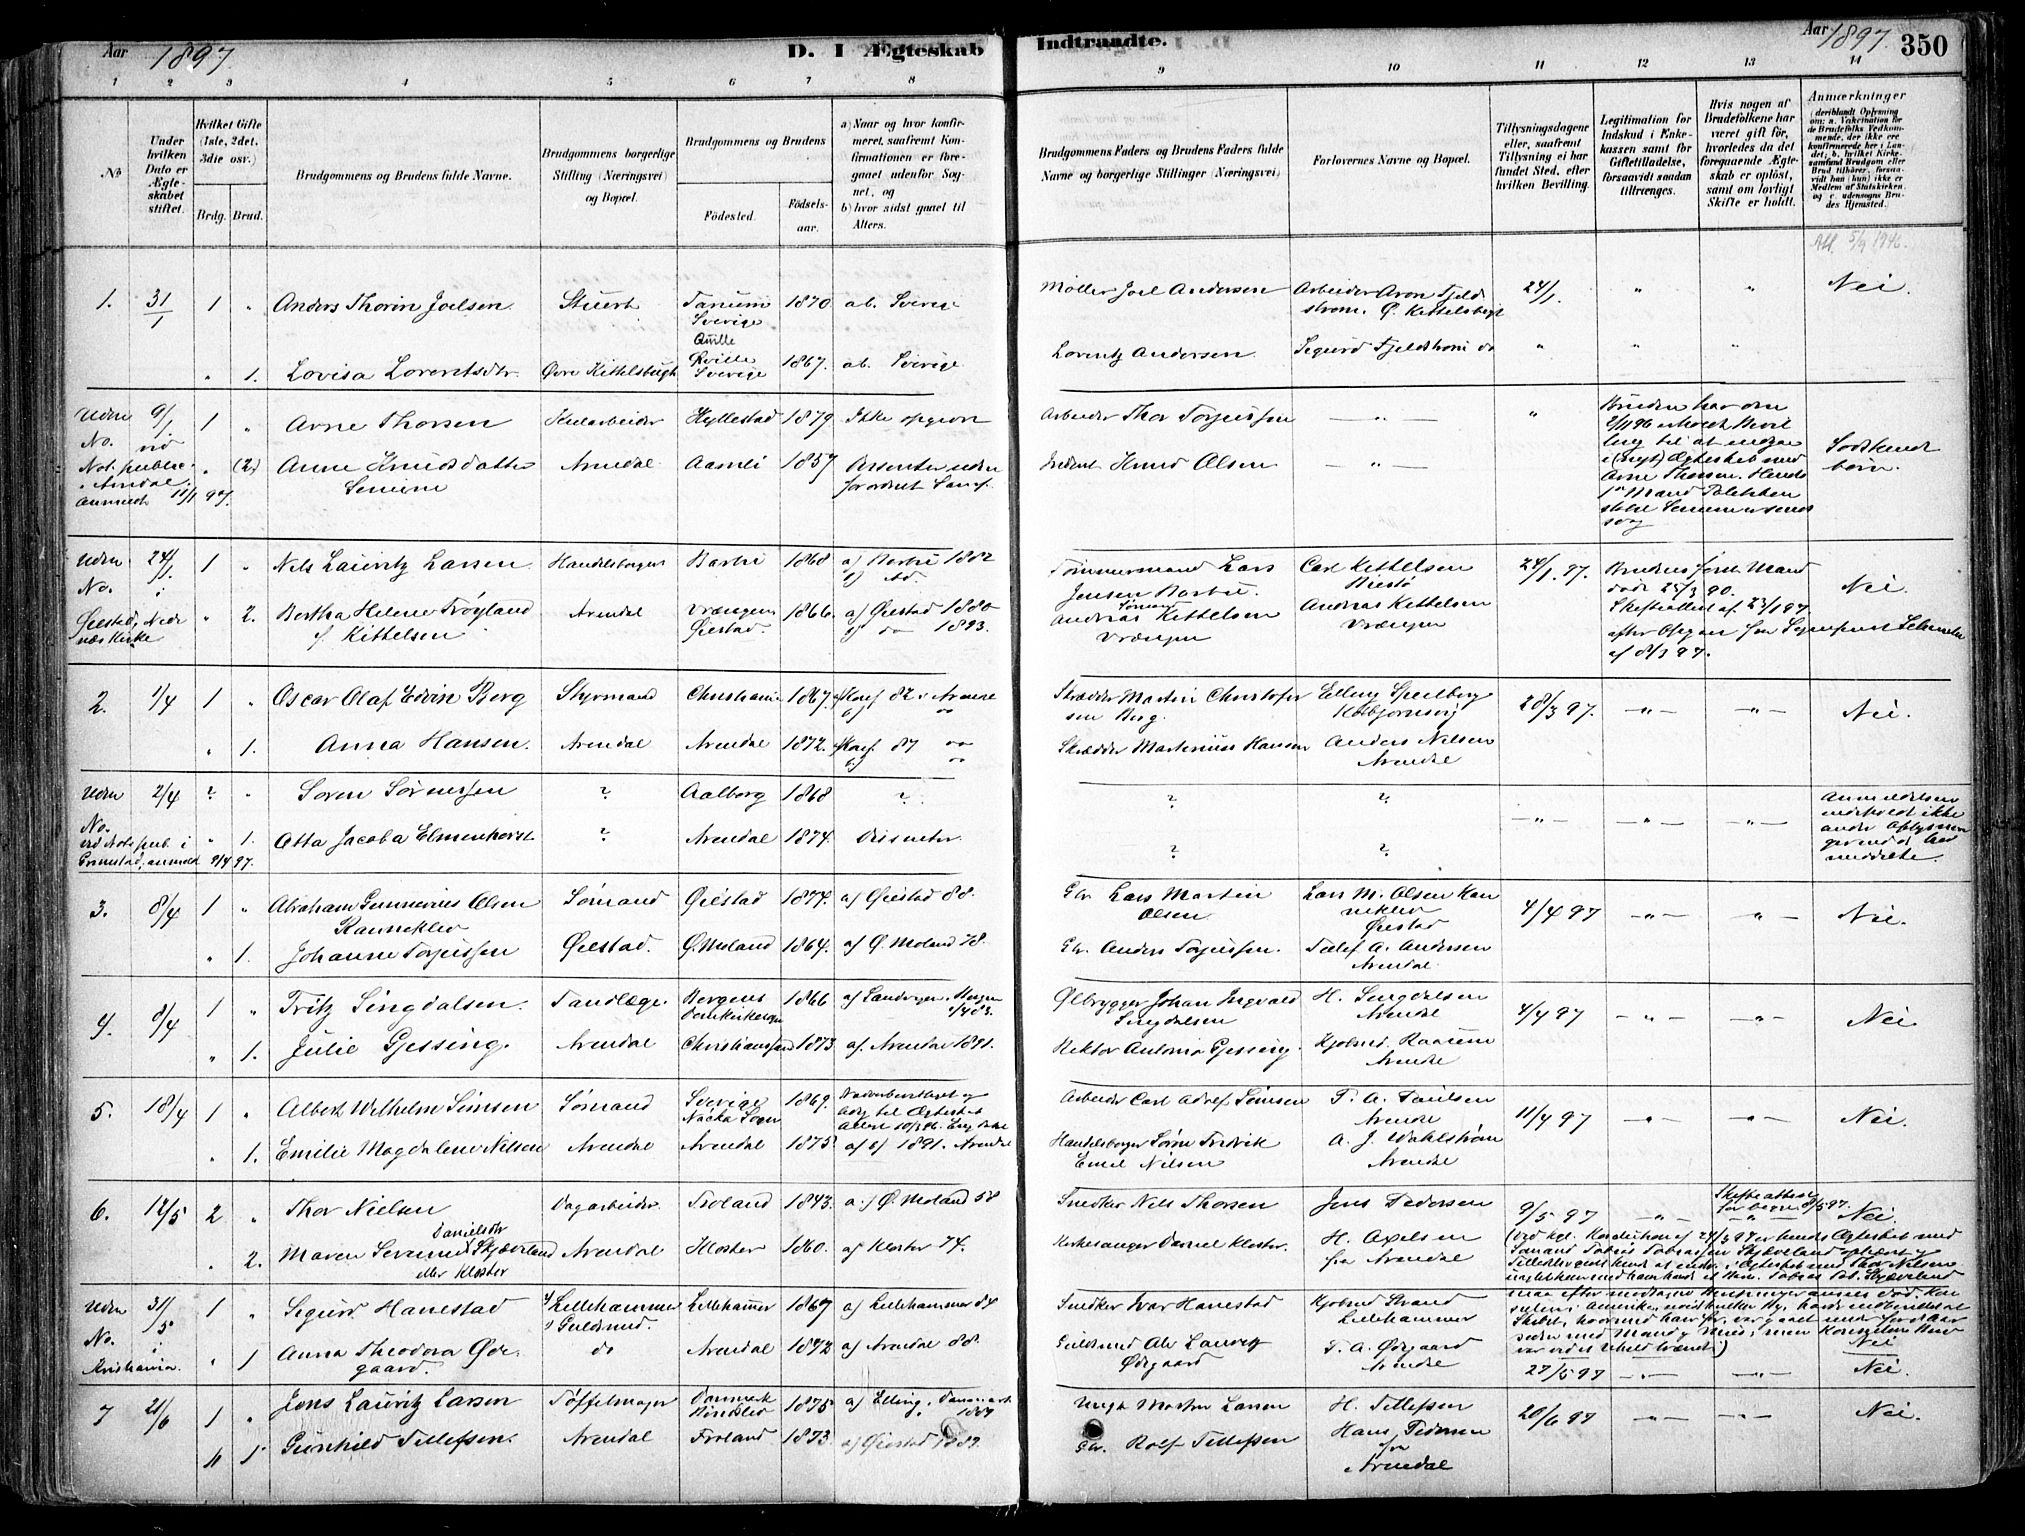 Aar 1897 D. I Ægteskab Indtraadte. Aar 1897. 350
1 2 3 4 5 6 7 8 9 10 11 12 13 14
No
Under hvilken Dato er Ægteskabet stiftet.
Hvilket Gifte (1ste, 2det, 3die osv.)
Brdg. Brud.
Brudgommens og Brudens fulde Navne.
Brudgommens borgerlige Stilling (Næringsvei) og Bopæl.
Brudgommens og Brudens
Fødested. Fødselsaar.
a) Naar og hvor konfirmeret, saafremt Konfirmationen er foregaaet udenfor Sognet, og
b) hvor sidst gaaet til Alters.
Brudgommens Faders og Brudens Faders fulde Navne og borgerlige Stillinger (Næringsvei)
Forlovernes Navne og Bopæl.
Tillysningsdagene eller, saafremt Tillysning ei har fundet Sted, efter hvilken Bevilling.
Legitimation for Indskud i Enkekassen samt for Giftetilladelse, forsaavidt saadan tiltrænges.
Hvis nogen af Brudefolkene har været gift før, hvorledes da det foregaaende Ægteskab er opløst, samt om lovligt Skifte er holdt.
Anmærkninger
(deriblandt Oplysning om: a. Vakcination for de Brudefolks Vedkommende, der ikke ere konfirmerede her i Landet; b. hvilket Kirkesamfund Brudgom eller Brud tilhører, forsaavidt han (hun) ikke er Medlem af Statskirken, og c. udensogns Brudes Hjemsted.)
Att. 5/9 1946.
1. 31/1 1 " Anders Thorin Joelsen Stuert Tanum Sverige 1870 ab. Sverige Møller Joel Andersen Arbeider Aron Fjeldstrøm. Ø. Kittelsbugt 24/1. " " Nei.
" 1. Lovisa Lorentsdtr. Øvre Kittelsbugt Qville Qville Sverige 1867. ab. Sverige Lorentz Andersen Sigurd Fjeldstrøm do " " "
Uden No. 9/1 vid Not. public. i Arendal. anmeldt 11/1 97. 1 " Arne Thorsen Kularbeider Hyllestad 1879 Ikke opgivn Arbeider Thor Torjussen — " — "
" (2) Anne Knudsdatter Arendal. Aamli 1857 Dissenter uden forordnet Samf. Knud Olsen — " —
Bruden har den 2/11 96 erholdt Bevilling til at indgaa i (nyt) Ægteskab med Arne Thorsen. Hendes 1ste Mand
Uden No. 24/1. i Øiestad, Nedenæs Kirke 1 " Nils Lauritz Larsen Handelsborger Barbu 1868 a) Barbu 1882 b) do. Tømmermand Lars Jensen Barbu. Carl Kittelsen Biestø 24/1. 97. Brudens første Mand døde 25/3 90. Skifteattest af 23/1 97 Nei.
" 2. Bertha Helene Frøyland f. Kittelsen Arendal Vrængen Øiestad. 1866. a) Øiestad 1880 b) do 1893. Sømand Andreas Kittelsen Vrængen Andreas Kittelsen Vrængen
2. 1/4 1 " Oscar Olaf Edvin Berg Styrmand Christiania 1867. a) Konf 82 i Arendal b) do Skrædder Martin Christofersen Berg. Elling Speilberg Kolbjørnsvig 28/3 97. — " — — " — Nei.
" 1. Anna Hansen. Arendal Arendal 1872. a) Konf. 87 do b) do Skrædder Martinius Hansen Anders Nilsen Arendal
Uden No. 2/4 ved Not. pub. i Grimstad, anmeldt 9/4 97. ? " Søren Sørenssen ? Aalborg 1868 ? ? ? — " — — " — — " — Anmeldelsen indeholdt ikke andre Oplysninger end de her meddelte.
" 1. Otta Jacoba Elmenhorst ? Arendal 1874. Dissenter. ? ?
3. 8/4 1 " Abraham Gunnerius Olsen Rannekleiv Sømand Øiestad 1874. a) Øiestad 88. Gbr. Lars Martin Olsen. Lars M. Olsen Rannekleiv Øiestad 4/4 97 — " — — " — Nei.
" 1. Johanne Torjussen Øiestad. Ø. Moland 1864. a) Ø. Moland 78. Gbr. Anders Torjussen. Tellef A. Andersen Arendal.
4. 8/4 1 " Fritz Lingdalsen. Tandlæge. Bergens Domkirkesogn 1866 a) Sandvigen. Bergen 1/4 83. Ølbrygger Johan Ingvald Lingdalsen H. Lingdalsen Arendal 4/4 97 — " — — " — Nei
" 1. Julie Gjessing. Arendal Christianssand 1873. a). Arendal 1891. Rektor Antonio Gjessing. Kjøbmd. Raaum Arendal
5. 18/4 1 " Albert Wilhelm Simsen Sømand Sverige Nacka Sogn 1869. Arbeider Carl Adolf Simsen T. A. Paulsen Arendal 11/4 97 — " — — " — Nei.
" 1. Emilie Magdalene Nilsen Arendal Arendal 1875. a) b) 1891. Arendal Handelsborger Sørn Fredrik Emil Nilsen A. J. Wahlstrøm Arendal
6. 14/5 2 " Thor Nielsen Dagarbeider. Froland 1843. a.) Ø. Moland 58 Snedker Nils Thorsen Jens Pedersen 9/5 97 — " — Skifteattest for begge 8/5 97. Nei.
" 2. Maren Severine Danielsdtr Skjæveland eller Kloster Arendal Kloster 1860. a) Kloster 74. Kirkesanger Daniel Kloster. H. Axelsen fra Arendal
Uden No. 31/5 i Kristiania. 1 " Sigurd Hanestad Lillehammer Guldsmd. Lillehammer 1867 a) Lillehammer 84 Snedker Ivar Hanestad Kjøbmd Strand Lillehammer Nei
" 1 Anna Theodora Ødegaard do Arendal 1872 a) Arendal 88. Guldsmed Ole Lauritz Ødegaard T. A. Ødegaard Arendal 27/5 97 — " — — " — Nei
7 21/6 1 " Jens Lauritz Larsen Tøffelmager Danmark 1875 a) Elling, Danmark 1889 Morten Larsen H. Tellefsen 20/6 97 — " — — " — Nei.
" 1 Gunhild Tellefsen. Arendal Froland 1873. a) Øiestad 1889. Gbr. Rolf Tellefsen Hans Pedersen fra Arendal